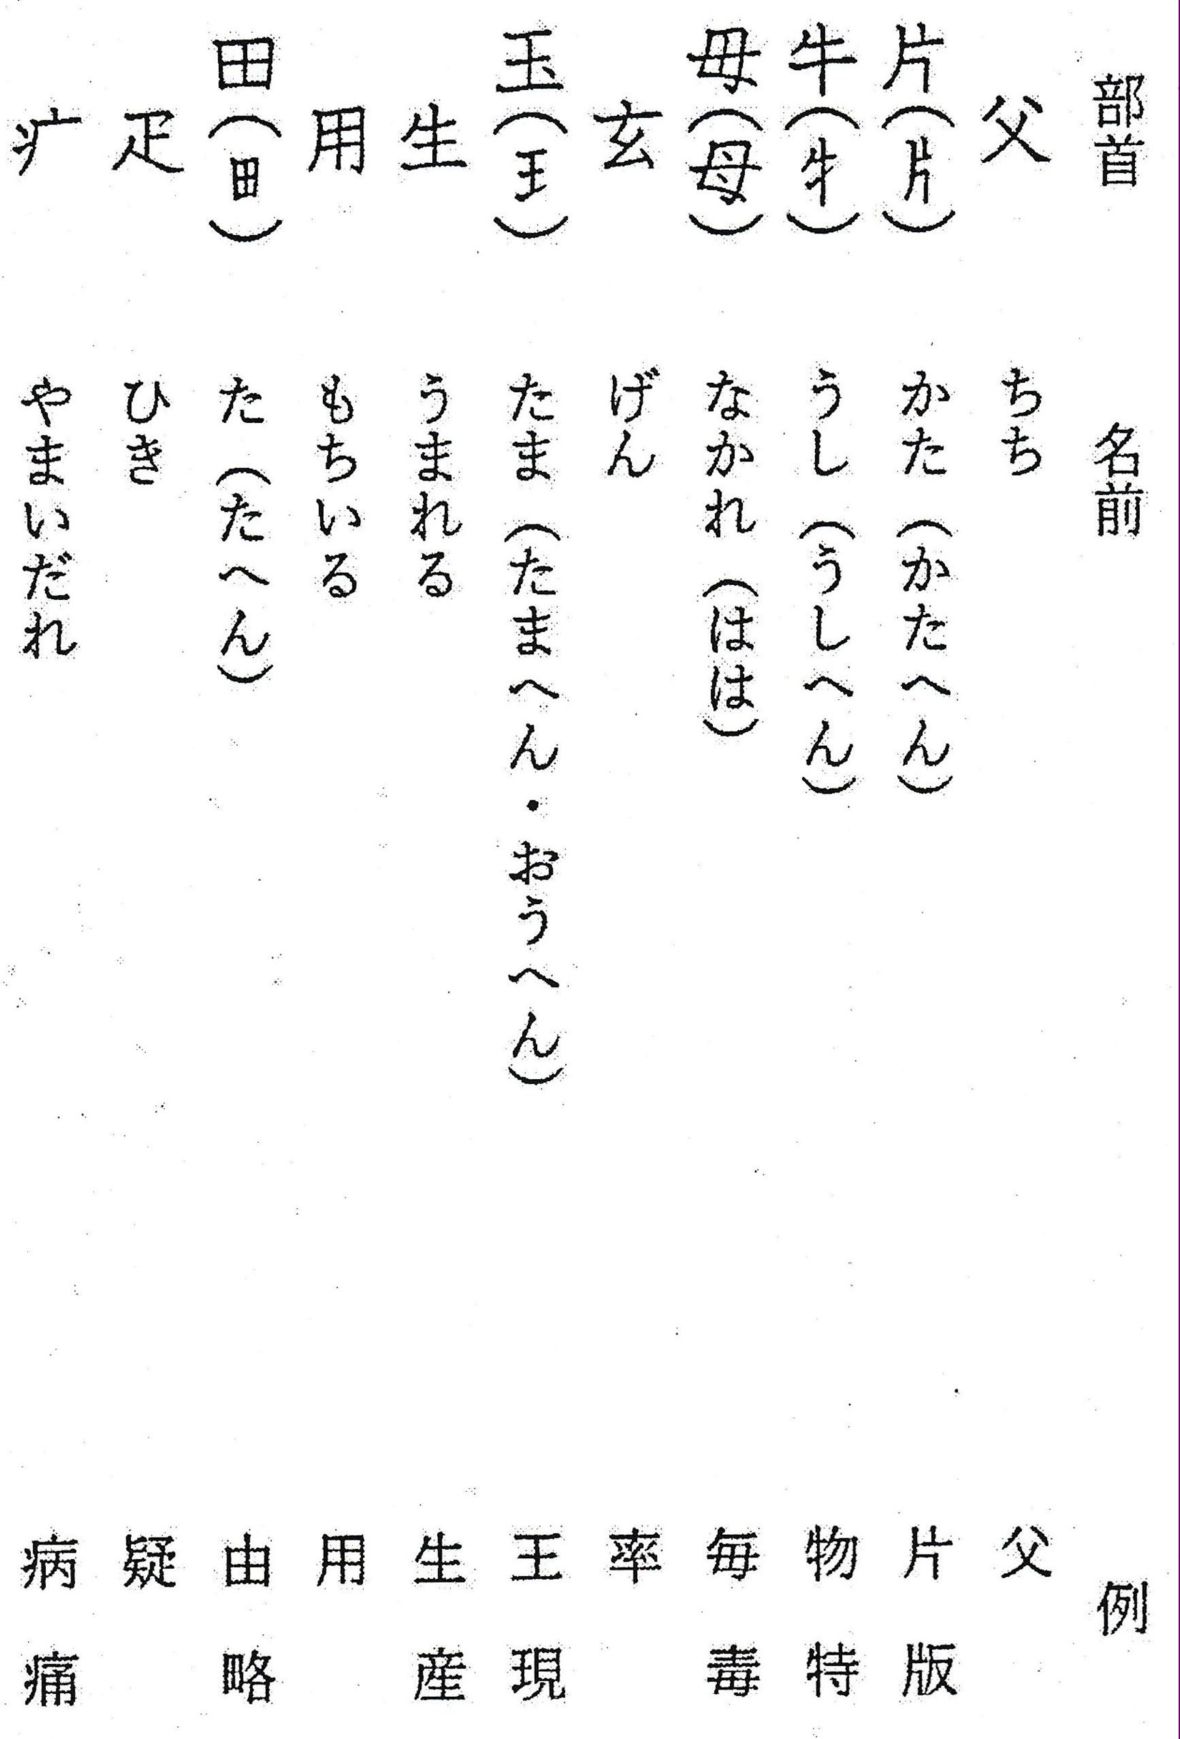 部首 名前 例
父 ちち 父
片(片) かた(かたへん) 片 版
牛(牜) うし(うしへん) 物 特
毋(母) なかれ(はは) 毎 毒
玄 げん 率
玉(王) たま(たまへん・おうへん) 王 現
生 うまれる 生 産
用 もちいる 用
田(田) た(たへん) 由 略
疋 ひき 疑
疒 やまいだれ 病 痛